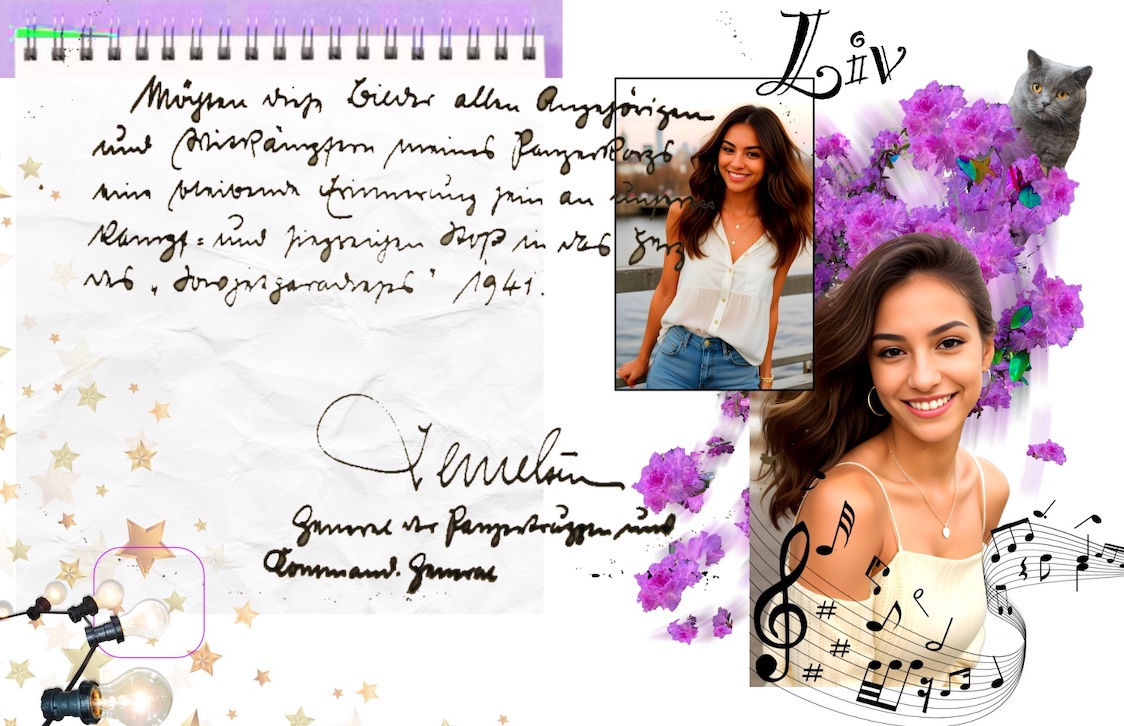 Liv
Möchten diese Bilder allen Angehörigen
und Mitkämpfern meines Panzerkorps
eine bleibende Erinnerung sein an unseren
Kampf= und siegreichen Stoß in das Herz
des „Sowjetparadieses“ 1941.
Lemelsen
General der Panzertruppen und
Command. General